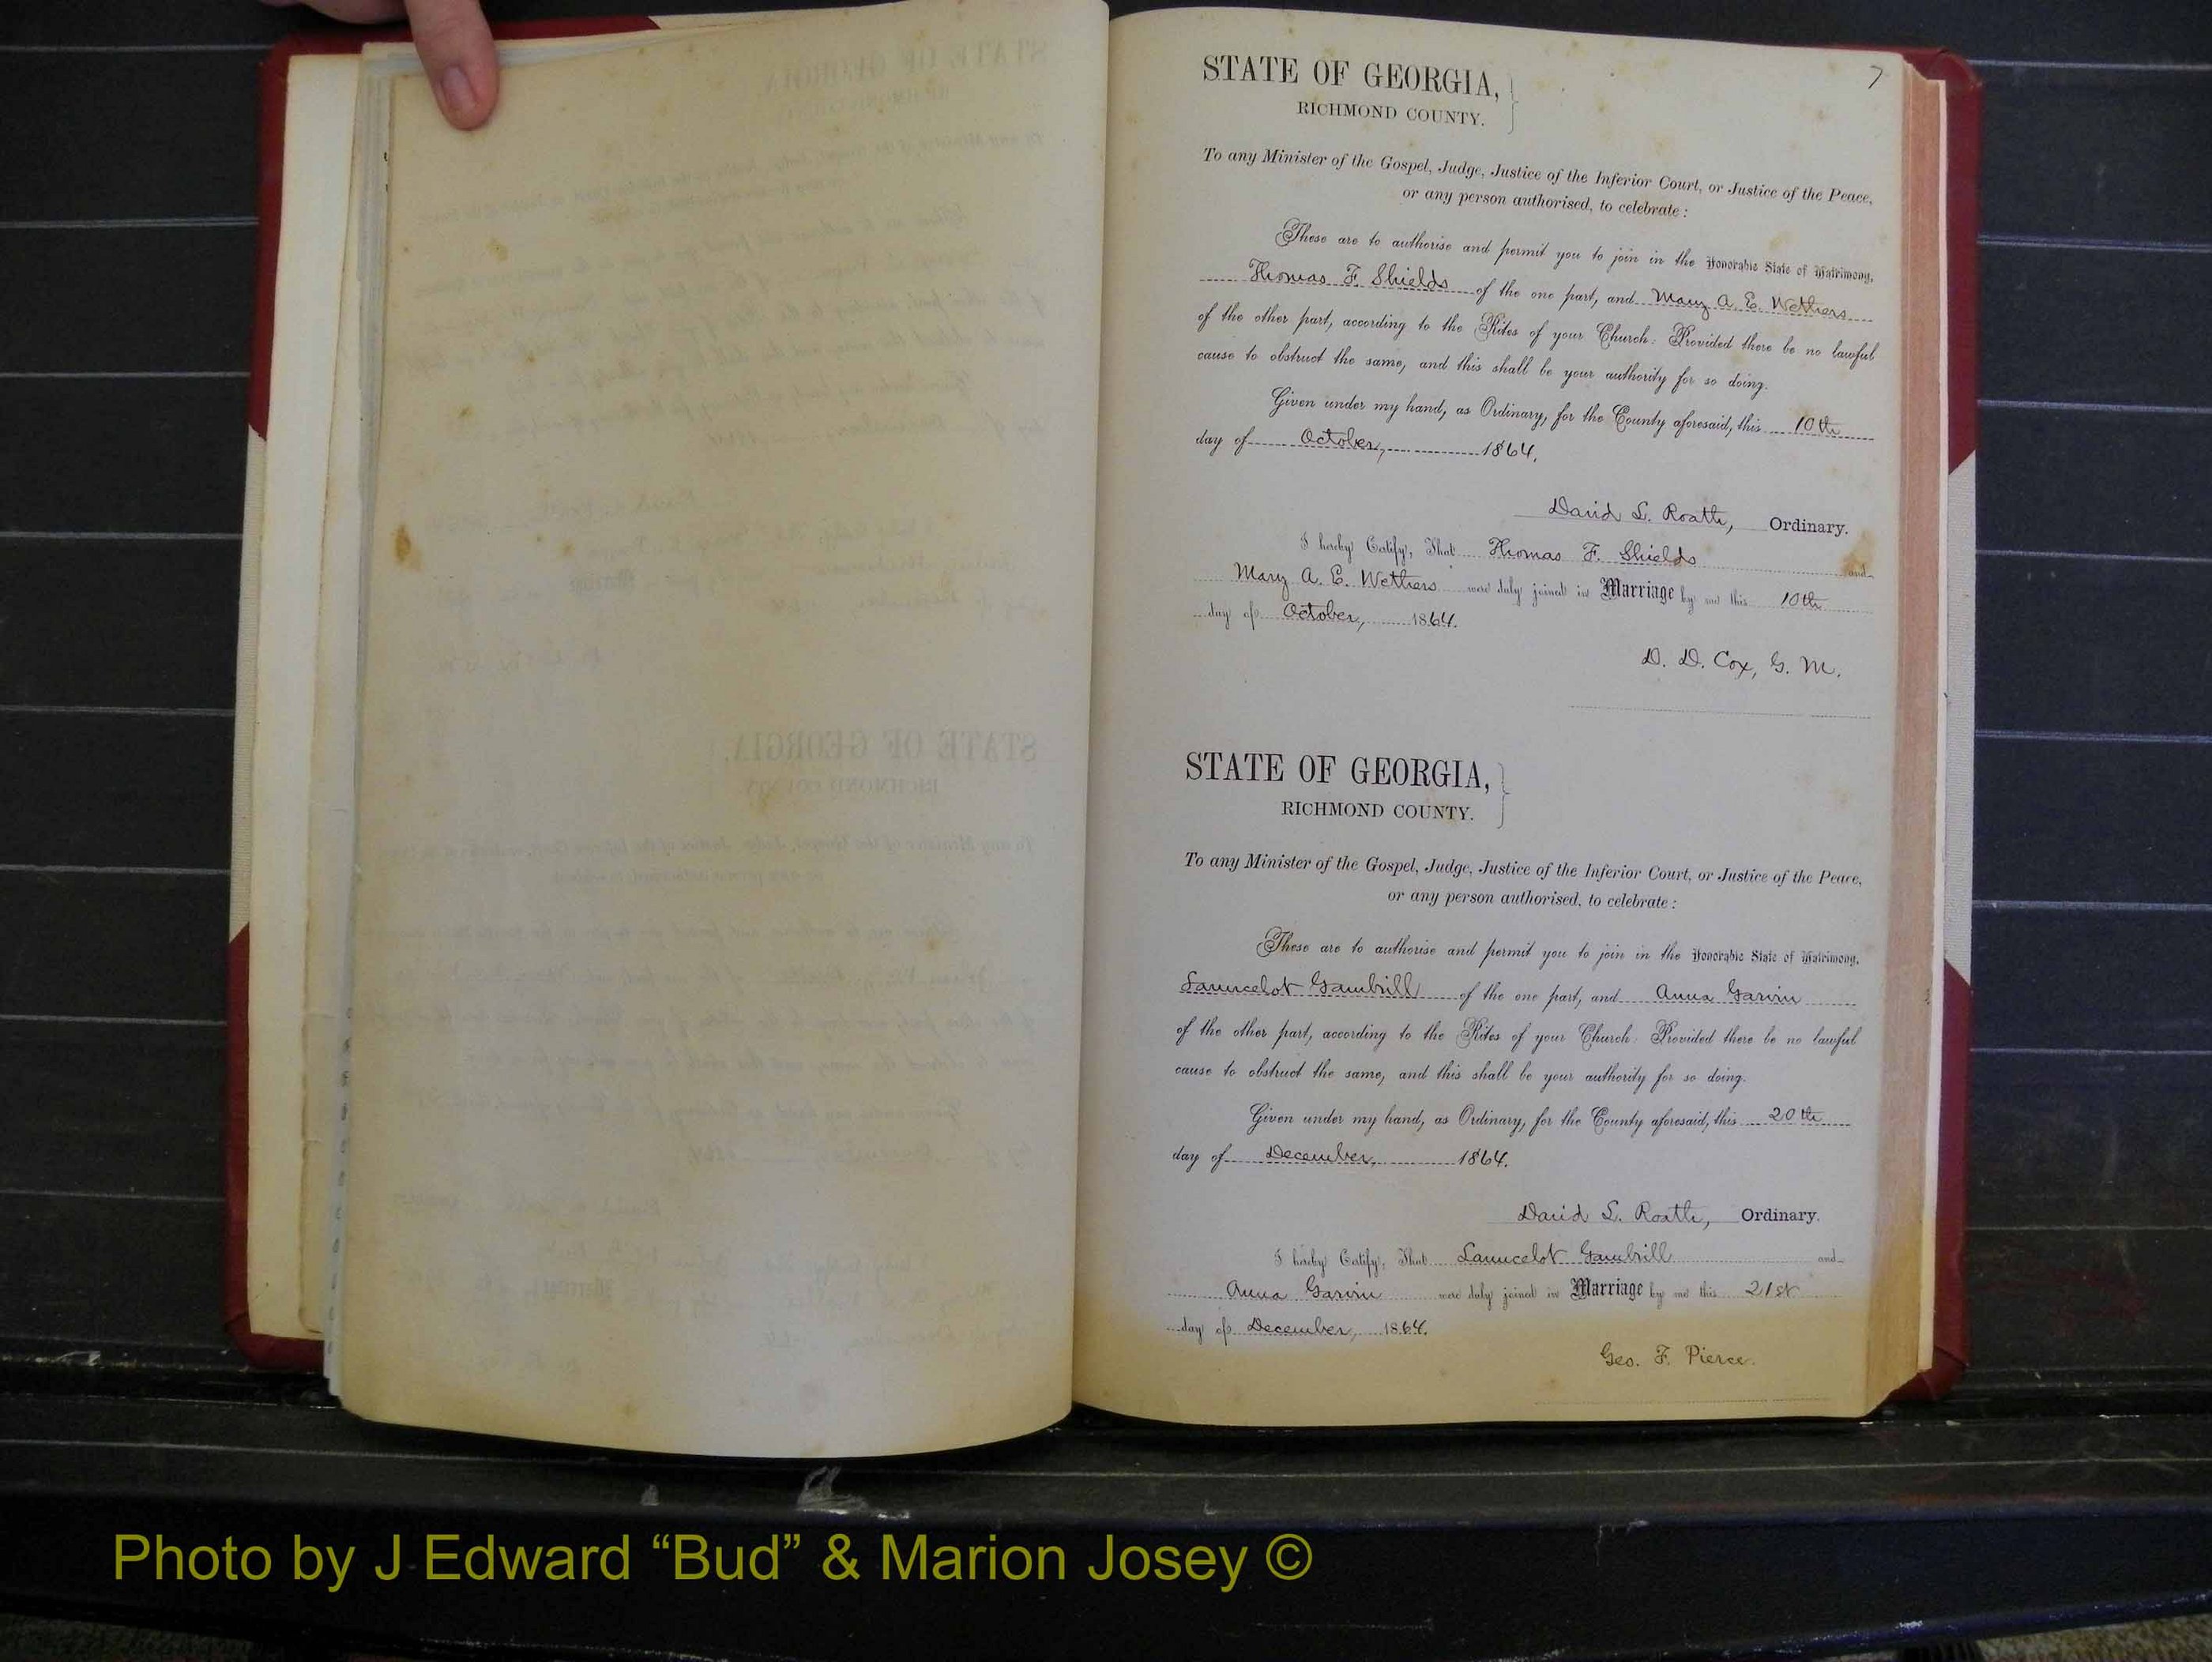 7
STATE OF GEORGIA,
RICHMOND COUNTY.
To any Minister of the Gospel, Judge, Justice of the Inferior Court, or Justice of the Peace,
or any person authorised, to celebrate:
These are to authorise and permit you to join in the Honorable State of Matrimony,
Thomas F. Shields of the one part, and Mary A. E. Wethers
of the other part, according to the Rites of your Church: Provided there be no lawful
cause to obstruct the same, and this shall be your authority for so doing.
Given under my hand, as Ordinary, for the County aforesaid, this 10th
day of October, 1864.
David L. Roath, Ordinary.
I hereby Certify, That Thomas F. Shields and
Mary A. E. Wethers were duly joined in Marriage by me this 10th
day of October, 1864.
D. D. Cox, G. M.
STATE OF GEORGIA,
RICHMOND COUNTY.
To any Minister of the Gospel, Judge, Justice of the Inferior Court, or Justice of the Peace,
or any person authorised, to celebrate:
These are to authorise and permit you to join in the Honorable State of Matrimony,
Launcelot Gambrill of the one part, and Anna Garvin
of the other part, according to the Rites of your Church: Provided there be no lawful
cause to obstruct the same, and this shall be your authority for so doing.
Given under my hand, as Ordinary, for the County aforesaid, this 20th
day of December, 1864.
David L. Roath, Ordinary.
I hereby Certify, That Launcelot Gambrill and
Anna Garvin were duly joined in Marriage by me this 21st
day of December, 1864.
Geo. F. Pierce.
Photo by J Edward “Bud” & Marion Josey ©